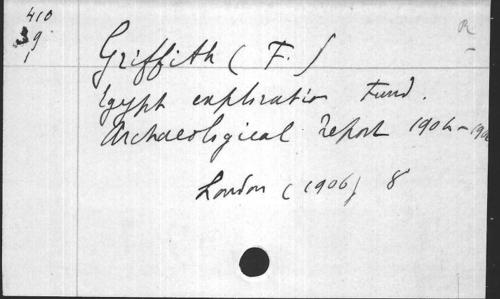 410
39
1
R
Griffith ( F. )
Egypt exploration Fund.
Archaeological Report 1904-190
London (1906) 8